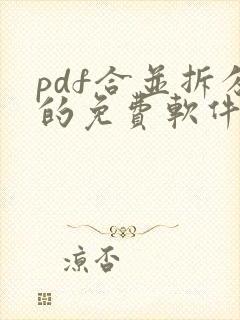 pdf合並拆分
的免費軟件
涼否